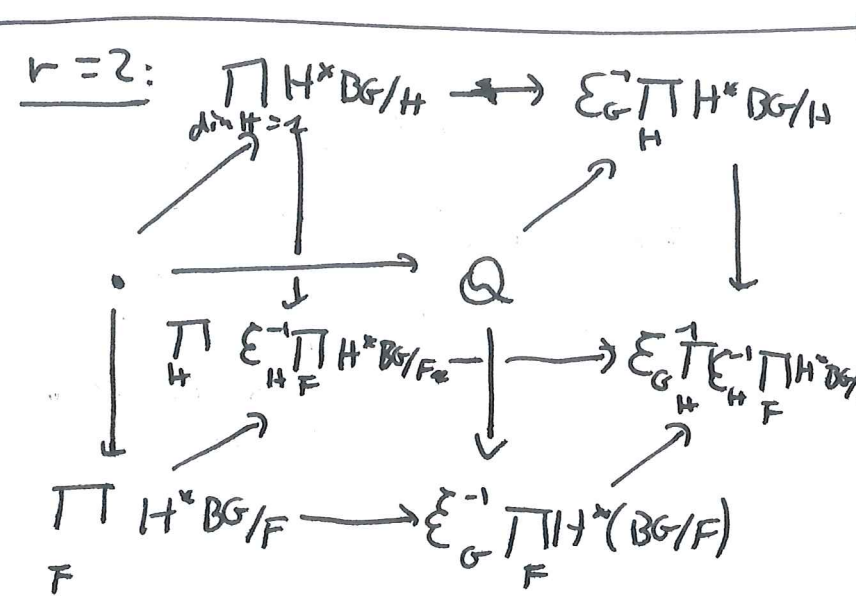 r = 2:
∏ H* BG/H → ℰ_G^{-1} ∏_H H* BG/H
dim H = 1
• → Q
∏_H ℰ_H^{-1} ∏_F H* BG/F → ℰ_G^{-1} ∏_H ℰ_H^{-1} ∏_F H* BG/
∏_F H* BG/F → ℰ_G^{-1} ∏_F H*(BG/F)